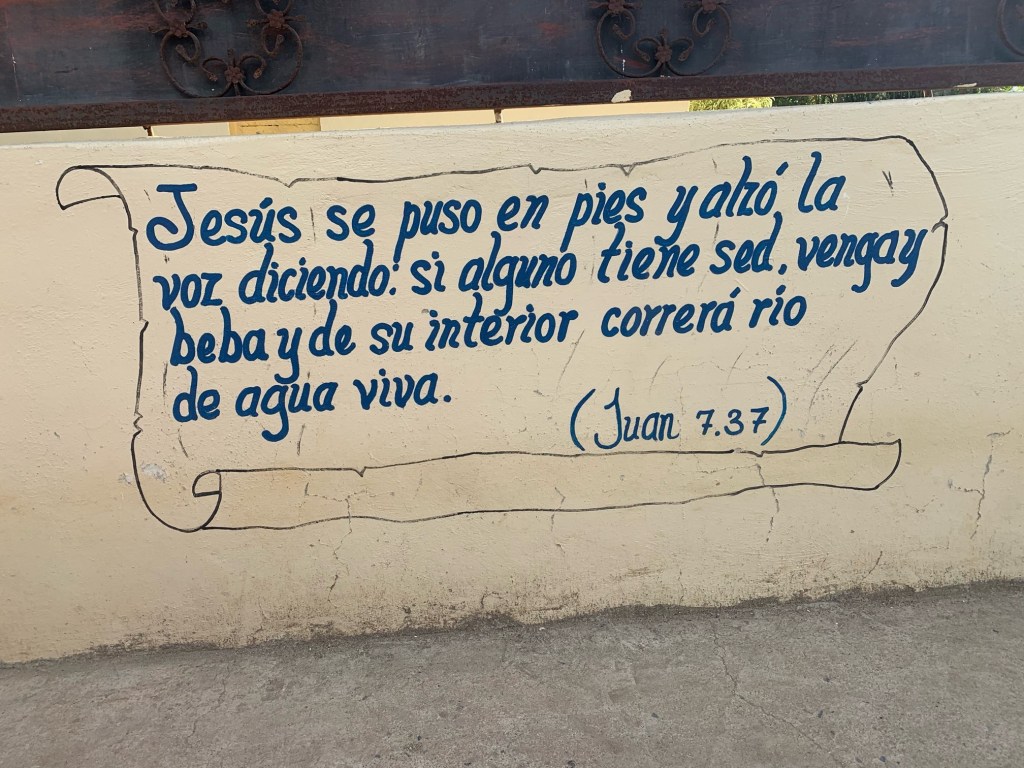 Jesús se puso en pies y alzó la
voz diciendo: si alguno tiene sed, venga y
beba y de su interior correrá rio
de agua viva.
(Juan 7.37)